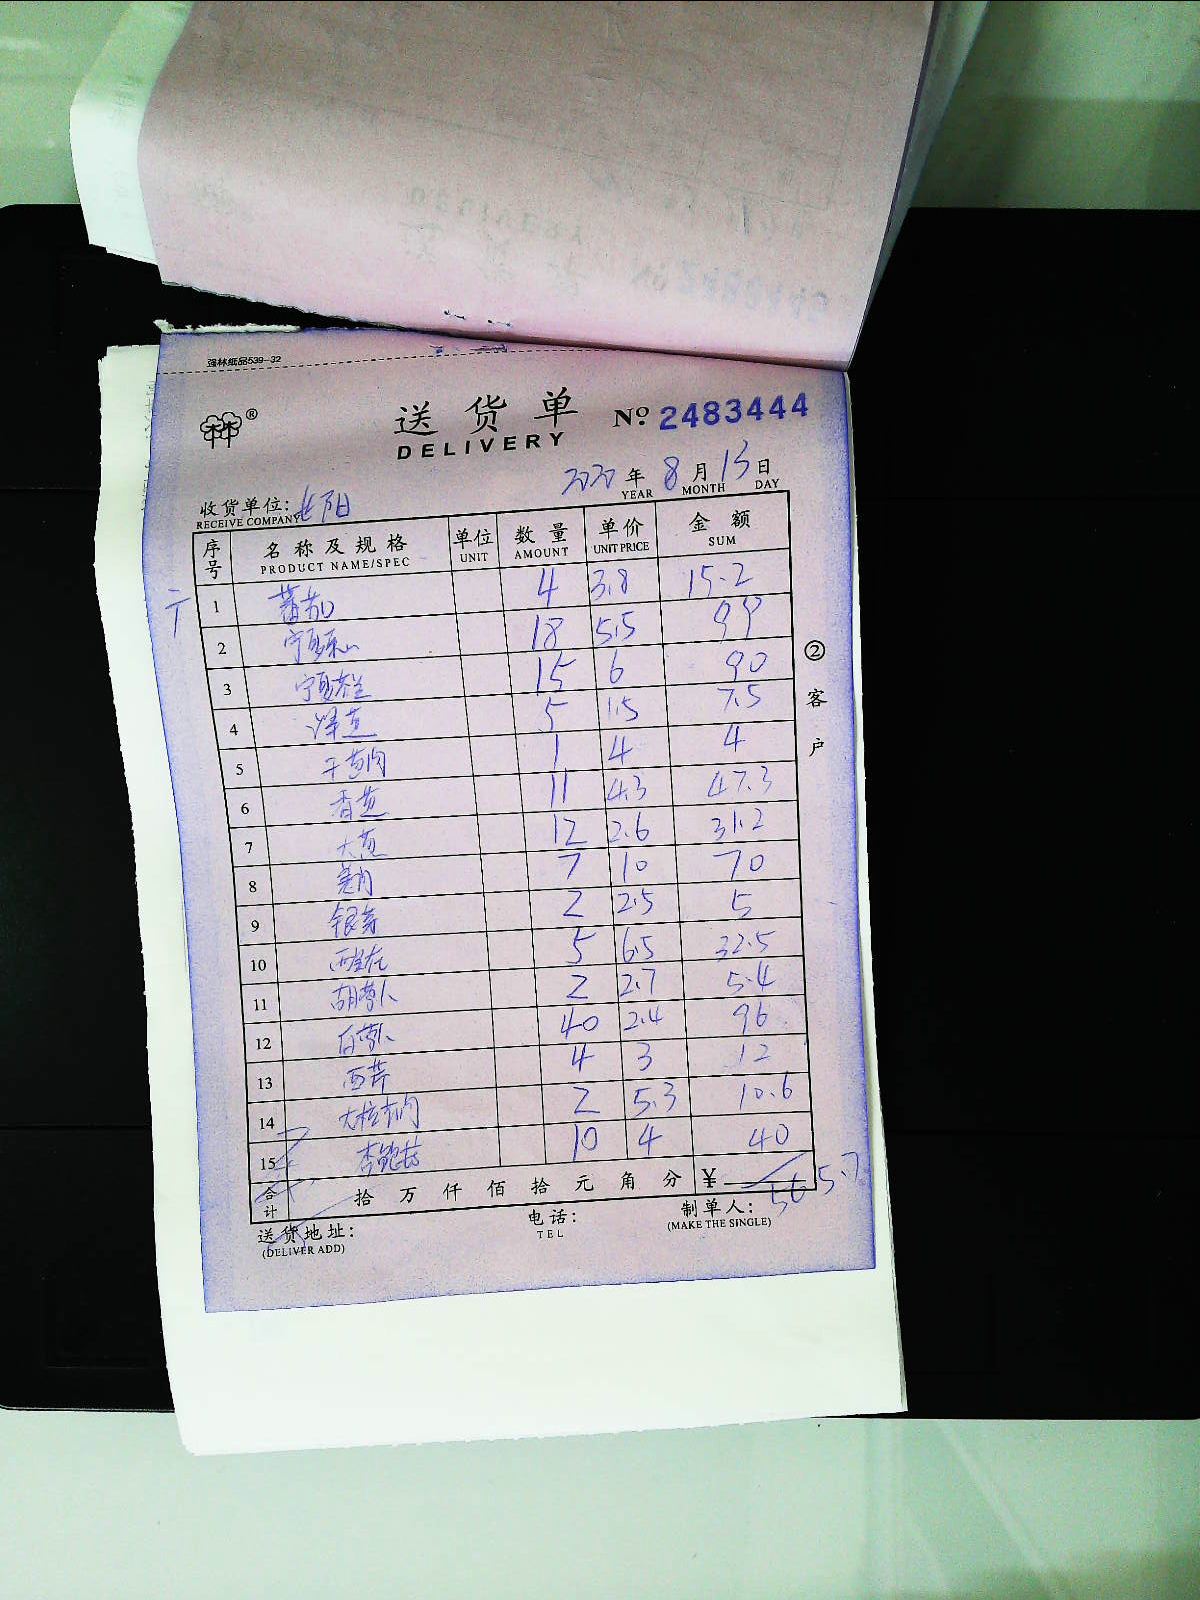 强林纸品539-32
送货单 No 2483444
DELIVERY
2020年8月15日
YEAR MONTH DAY
收货单位:
RECEIVE COMPANY
序号 名称及规格 单位 数量 单价 金额
PRODUCT NAME/SPEC UNIT AMOUNT UNIT PRICE SUM
1 蕃茄 4 3.8 15.2
2 宁夏菜心 18 5.5 99
3 宁夏芥兰 15 6 90
4 洋葱 5 1.5 7.5
5 干葱肉 1 4 4
6 香葱 11 4.3 47.3
7 大葱 12 2.6 31.2
8 姜肉 7 10 70
9 银芽 2 2.5 5
10 西兰花 5 6.5 32.5
11 胡萝卜 2 2.7 5.4
12 白萝卜 40 2.4 96
13 西芹 4 3 12
14 2 5.3 10.6
15 杏鲍菇 10 4 40
合计 拾万仟佰拾元角分 ¥ 565.7
送货地址: 电话: 制单人:
(DELIVER ADD) TEL (MAKE THE SINGLE)
②客户